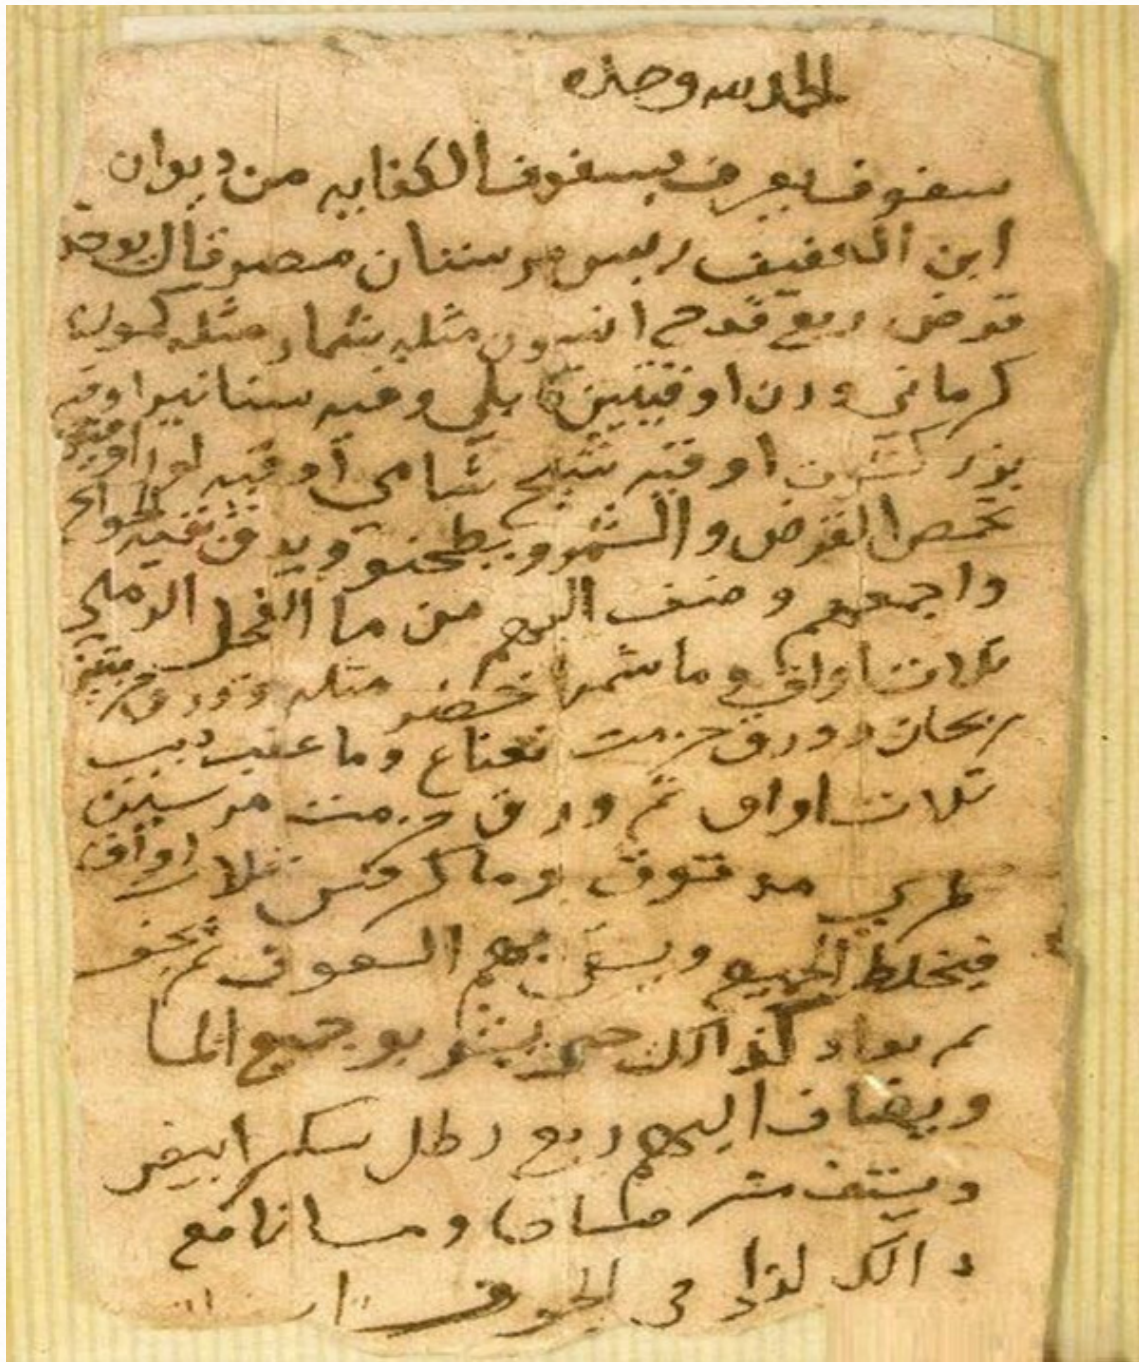 الحمد لله وحده
سفوف يعرف بسفوف الكفايه من ديوان
ابن العفيف ريس مرستان مصر قال يوخد
قرض ربع قدح انيسون مثله شمار مثله كمون
كرماني وزن اوقيتين كابلي وقيه سنانير اوقيه
بزر كشوت اوقيه شيح شامي اوقيه
تحمص القرض والشمر ويطحنو ويدق بقية الحوايج
واجمعهم وضف اليهم من ما الفحل الرملي
تلات اواق وما شمر اخضر مثله وورق
ريحان وورق حزمت نعناع وما عنب ديب
تلات اواق تم ورق حزمت مرسين
طري مدقوق وما كرفس تلات اواق
فيخلط الجميع ويسقى بهم السفوف تم يجفف
تم يعاد كذالك حتى يشربو جميع الما
ويضاف اليهم ربع رطل سكر ابيض
ويستف منه صباحا ومسا نافع
دالك لدا في الجوف